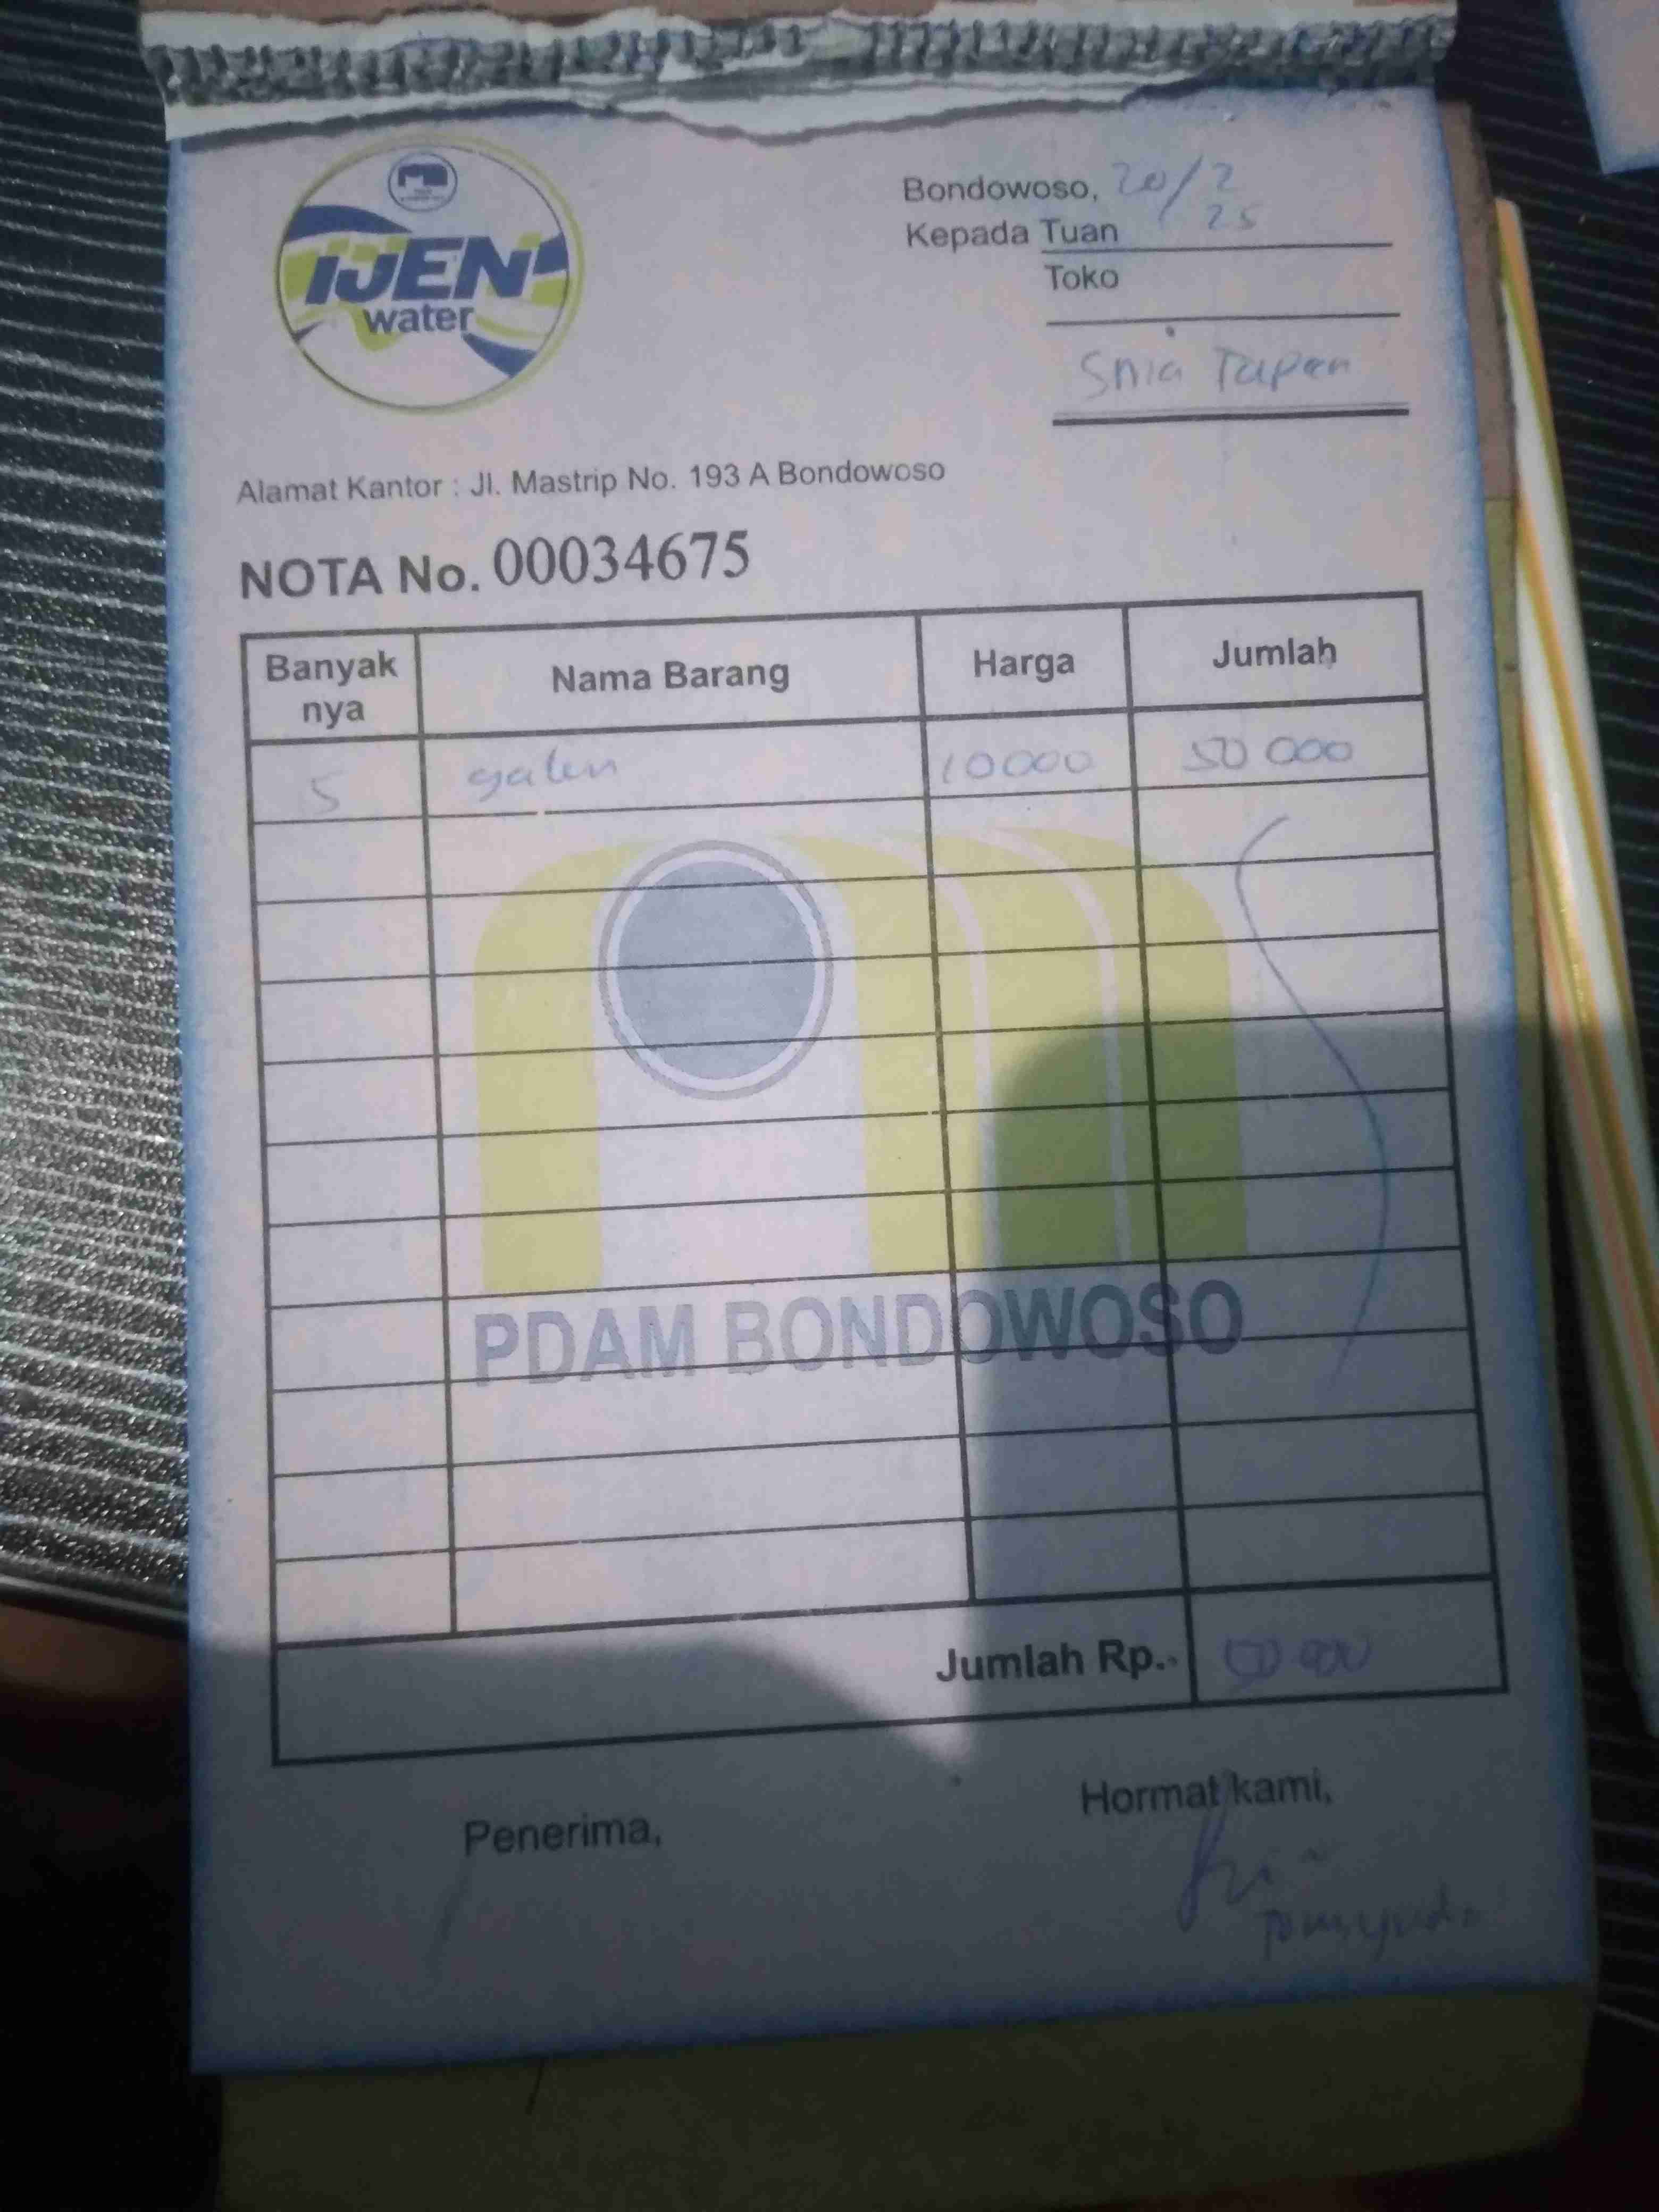 IJEN
water
Bondowoso, 20/2
25
Kepada Tuan
Toko
Tapen
Alamat Kantor : Jl. Mastrip No. 193 A Bondowoso
NOTA No. 00034675
Banyak nya Nama Barang Harga Jumlah
5 galon 10000 50 000
PDAM BONDOWOSO
Jumlah Rp. 50 000
Penerima,
Hormat kami,